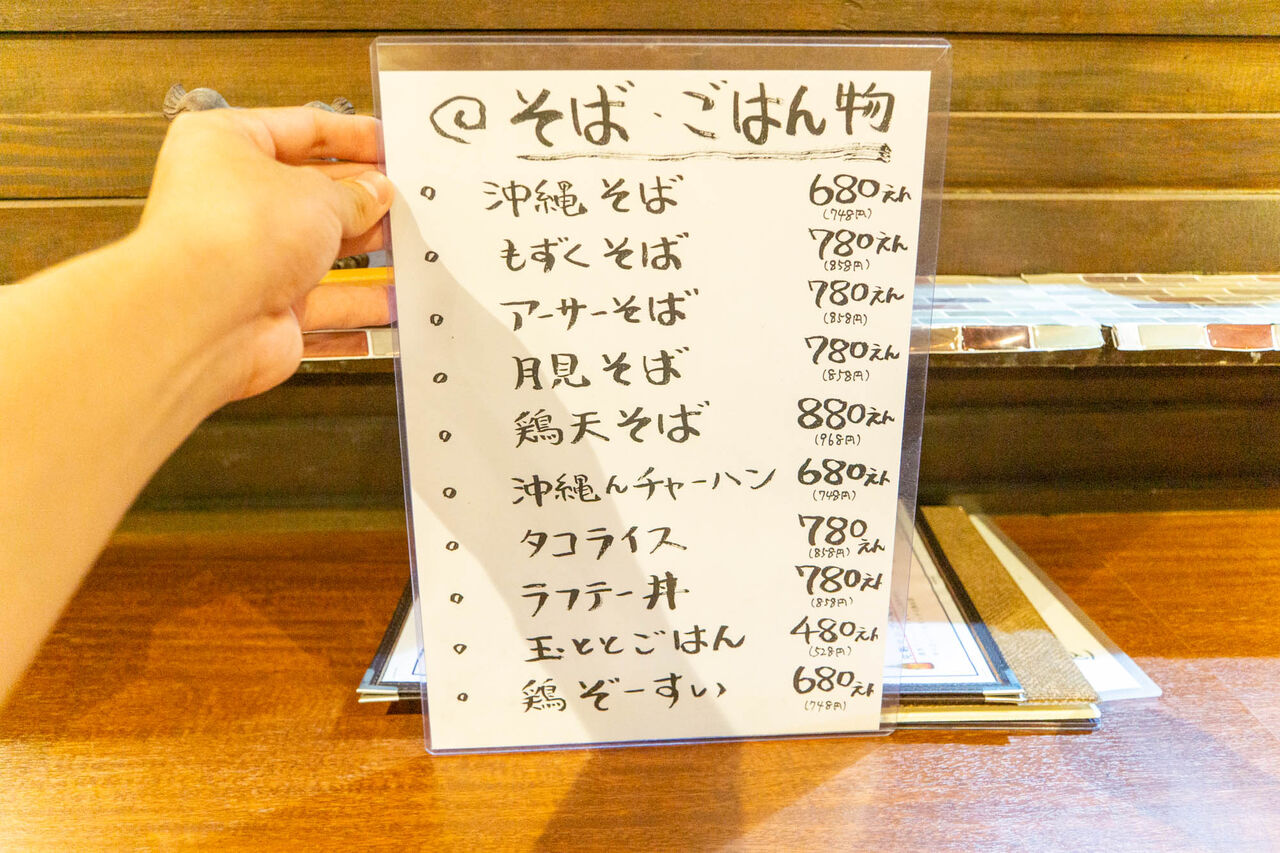 @ そば・ごはん物
。 沖縄そば 680えん
(748円)
。 もずくそば 780えん
(858円)
。 アーサーそば 780えん
(858円)
。 月見そば 780えん
(858円)
。 鶏天そば 880えん
(968円)
。 沖縄んチャーハン 680えん
(748円)
。 タコライス 780えん
(858円)
。 ラフテー丼 780えん
(858円)
。 玉ととごはん 480えん
(528円)
。 鶏ぞーすい 680えん
(748円)